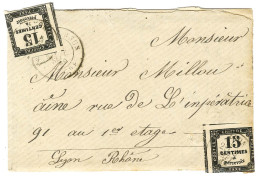 15
CENTIMES
à
percevoir
Monsieur
Monsieur Millou
rue de L'impératrice
91 au 1er étage
Lyon Rhône
15
CENTIMES
à
percevoir